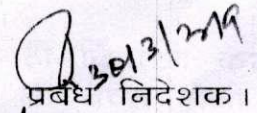 30/3/2019
प्रबंध निदेशक।